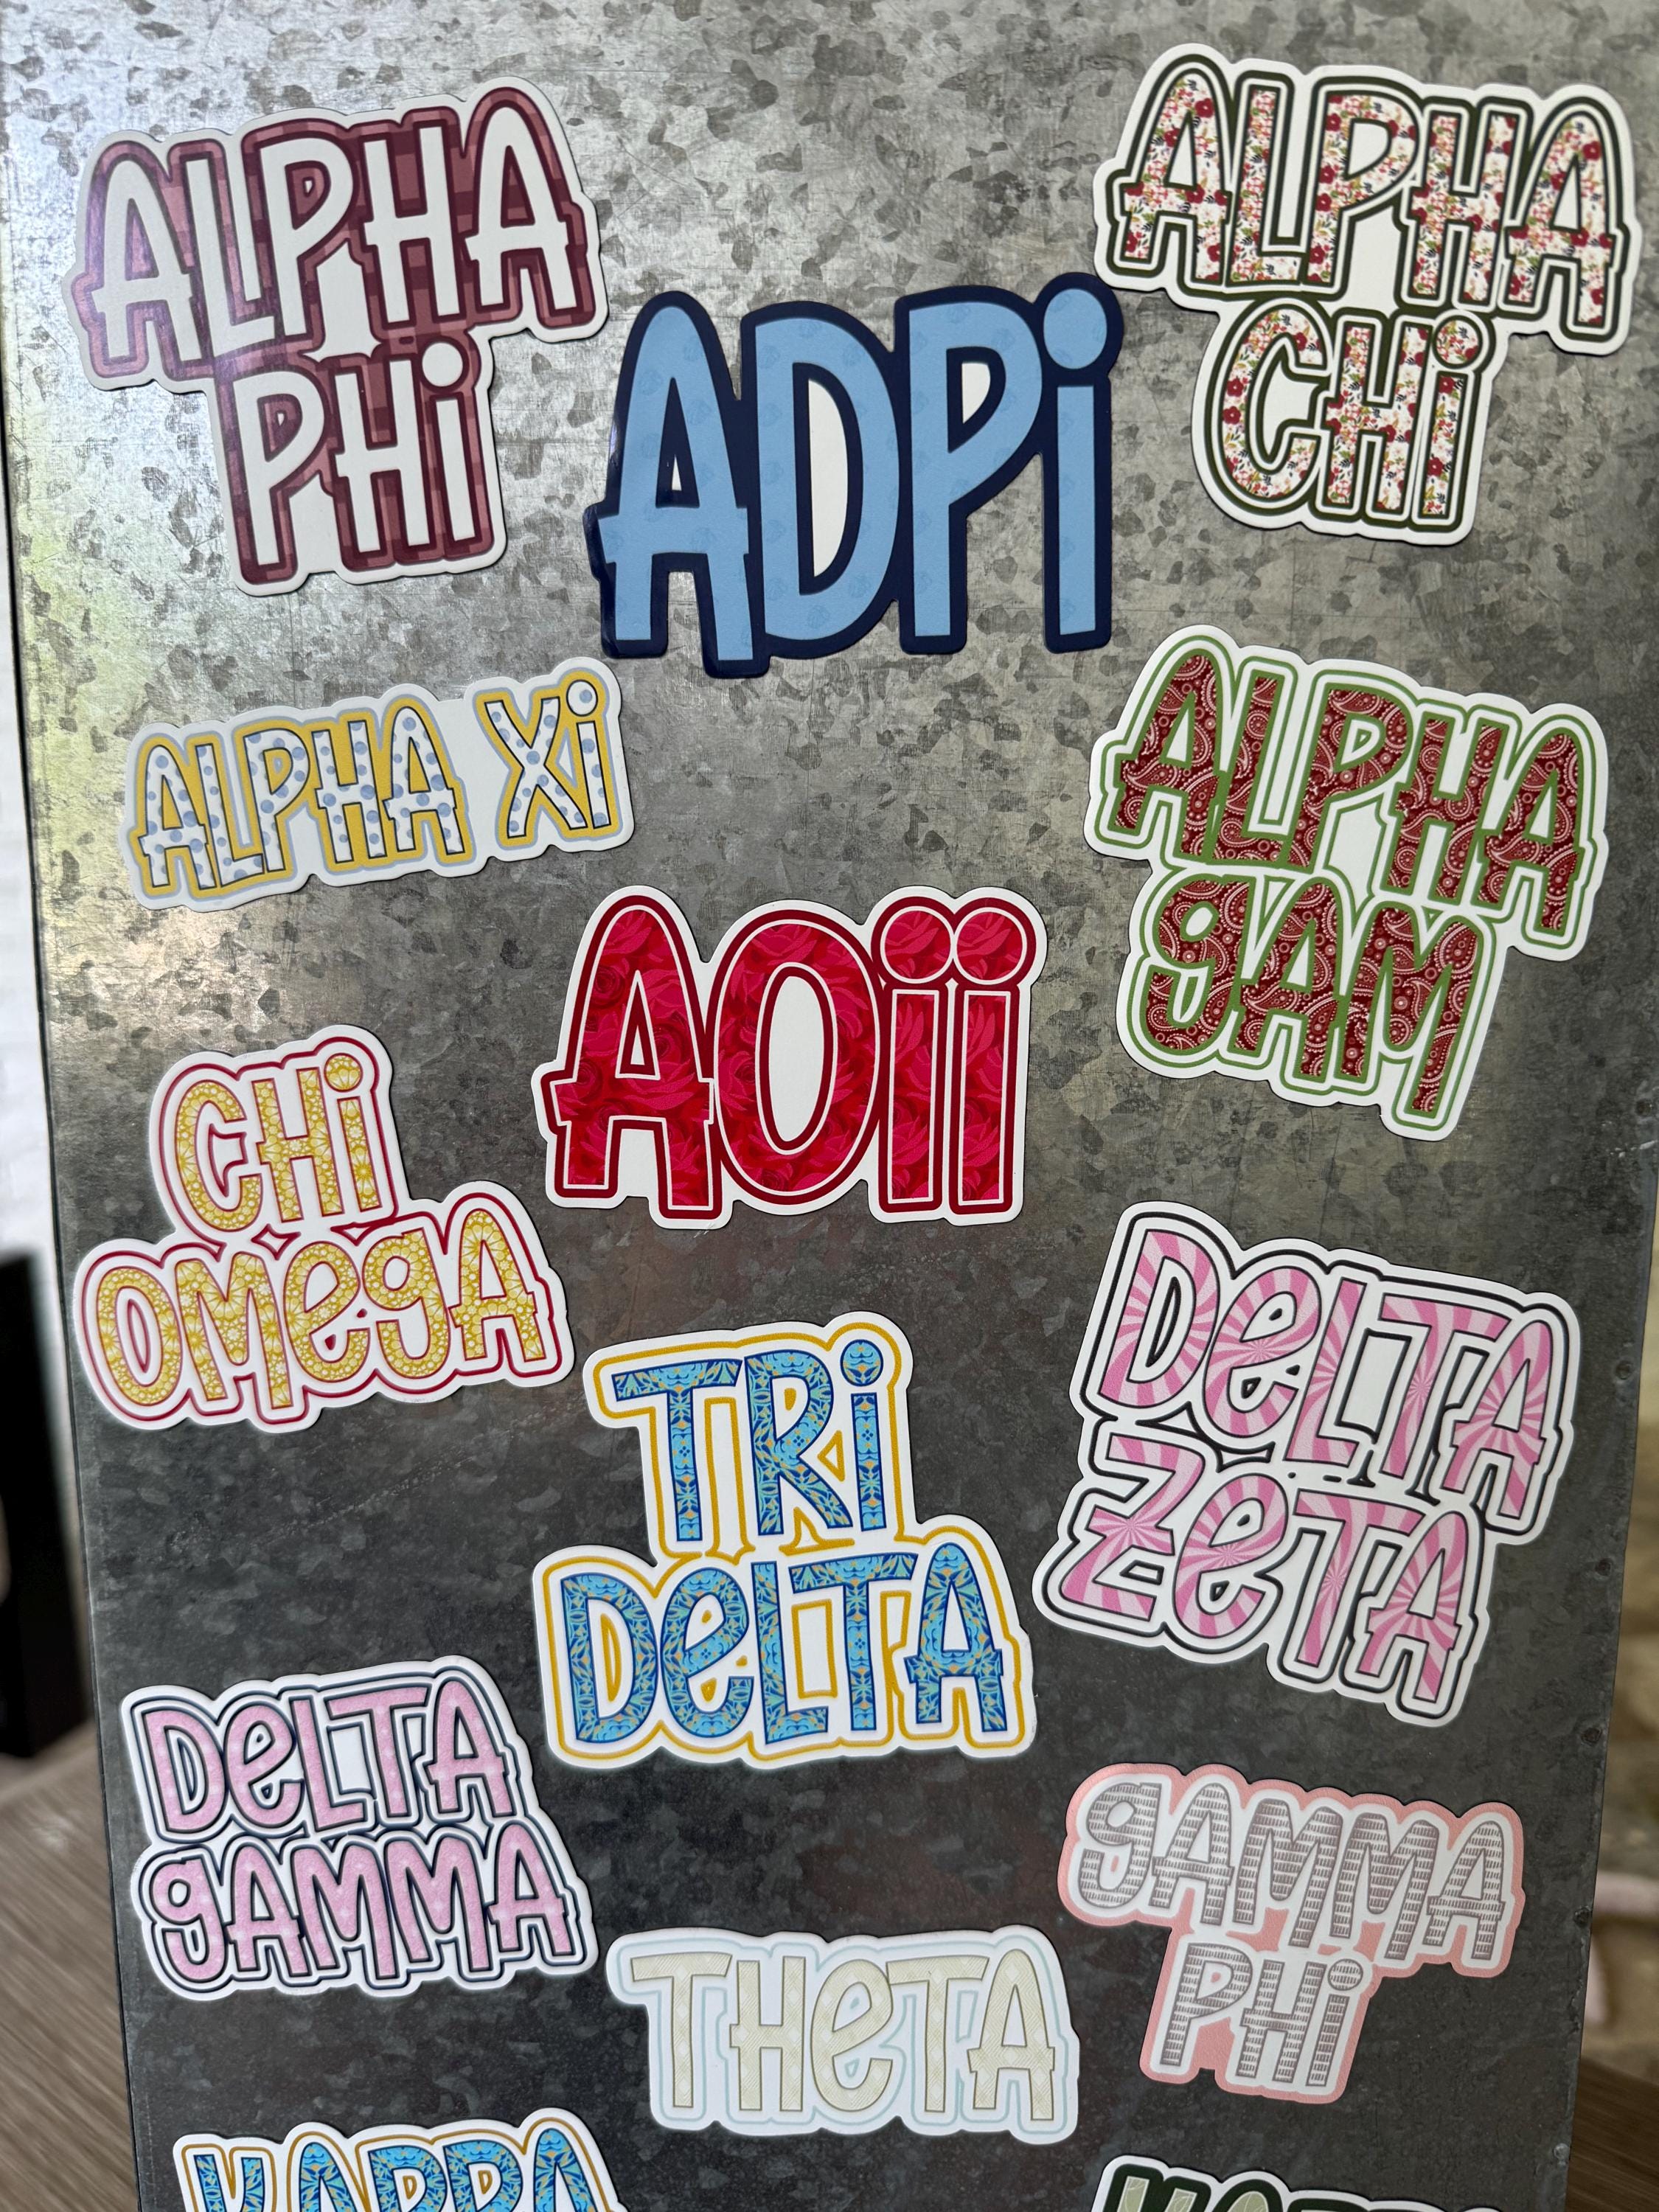 ALPHA
PHi
ADPi
ALPHA
CHi
ALPHA Xi
AOii
ALPHA
gAM
CHi
OMegA
TRi
DeLTA
DeLTA
ZeTA
DeLTA
gAMMA
THeTA
gAMMA
PHi
KAPPA